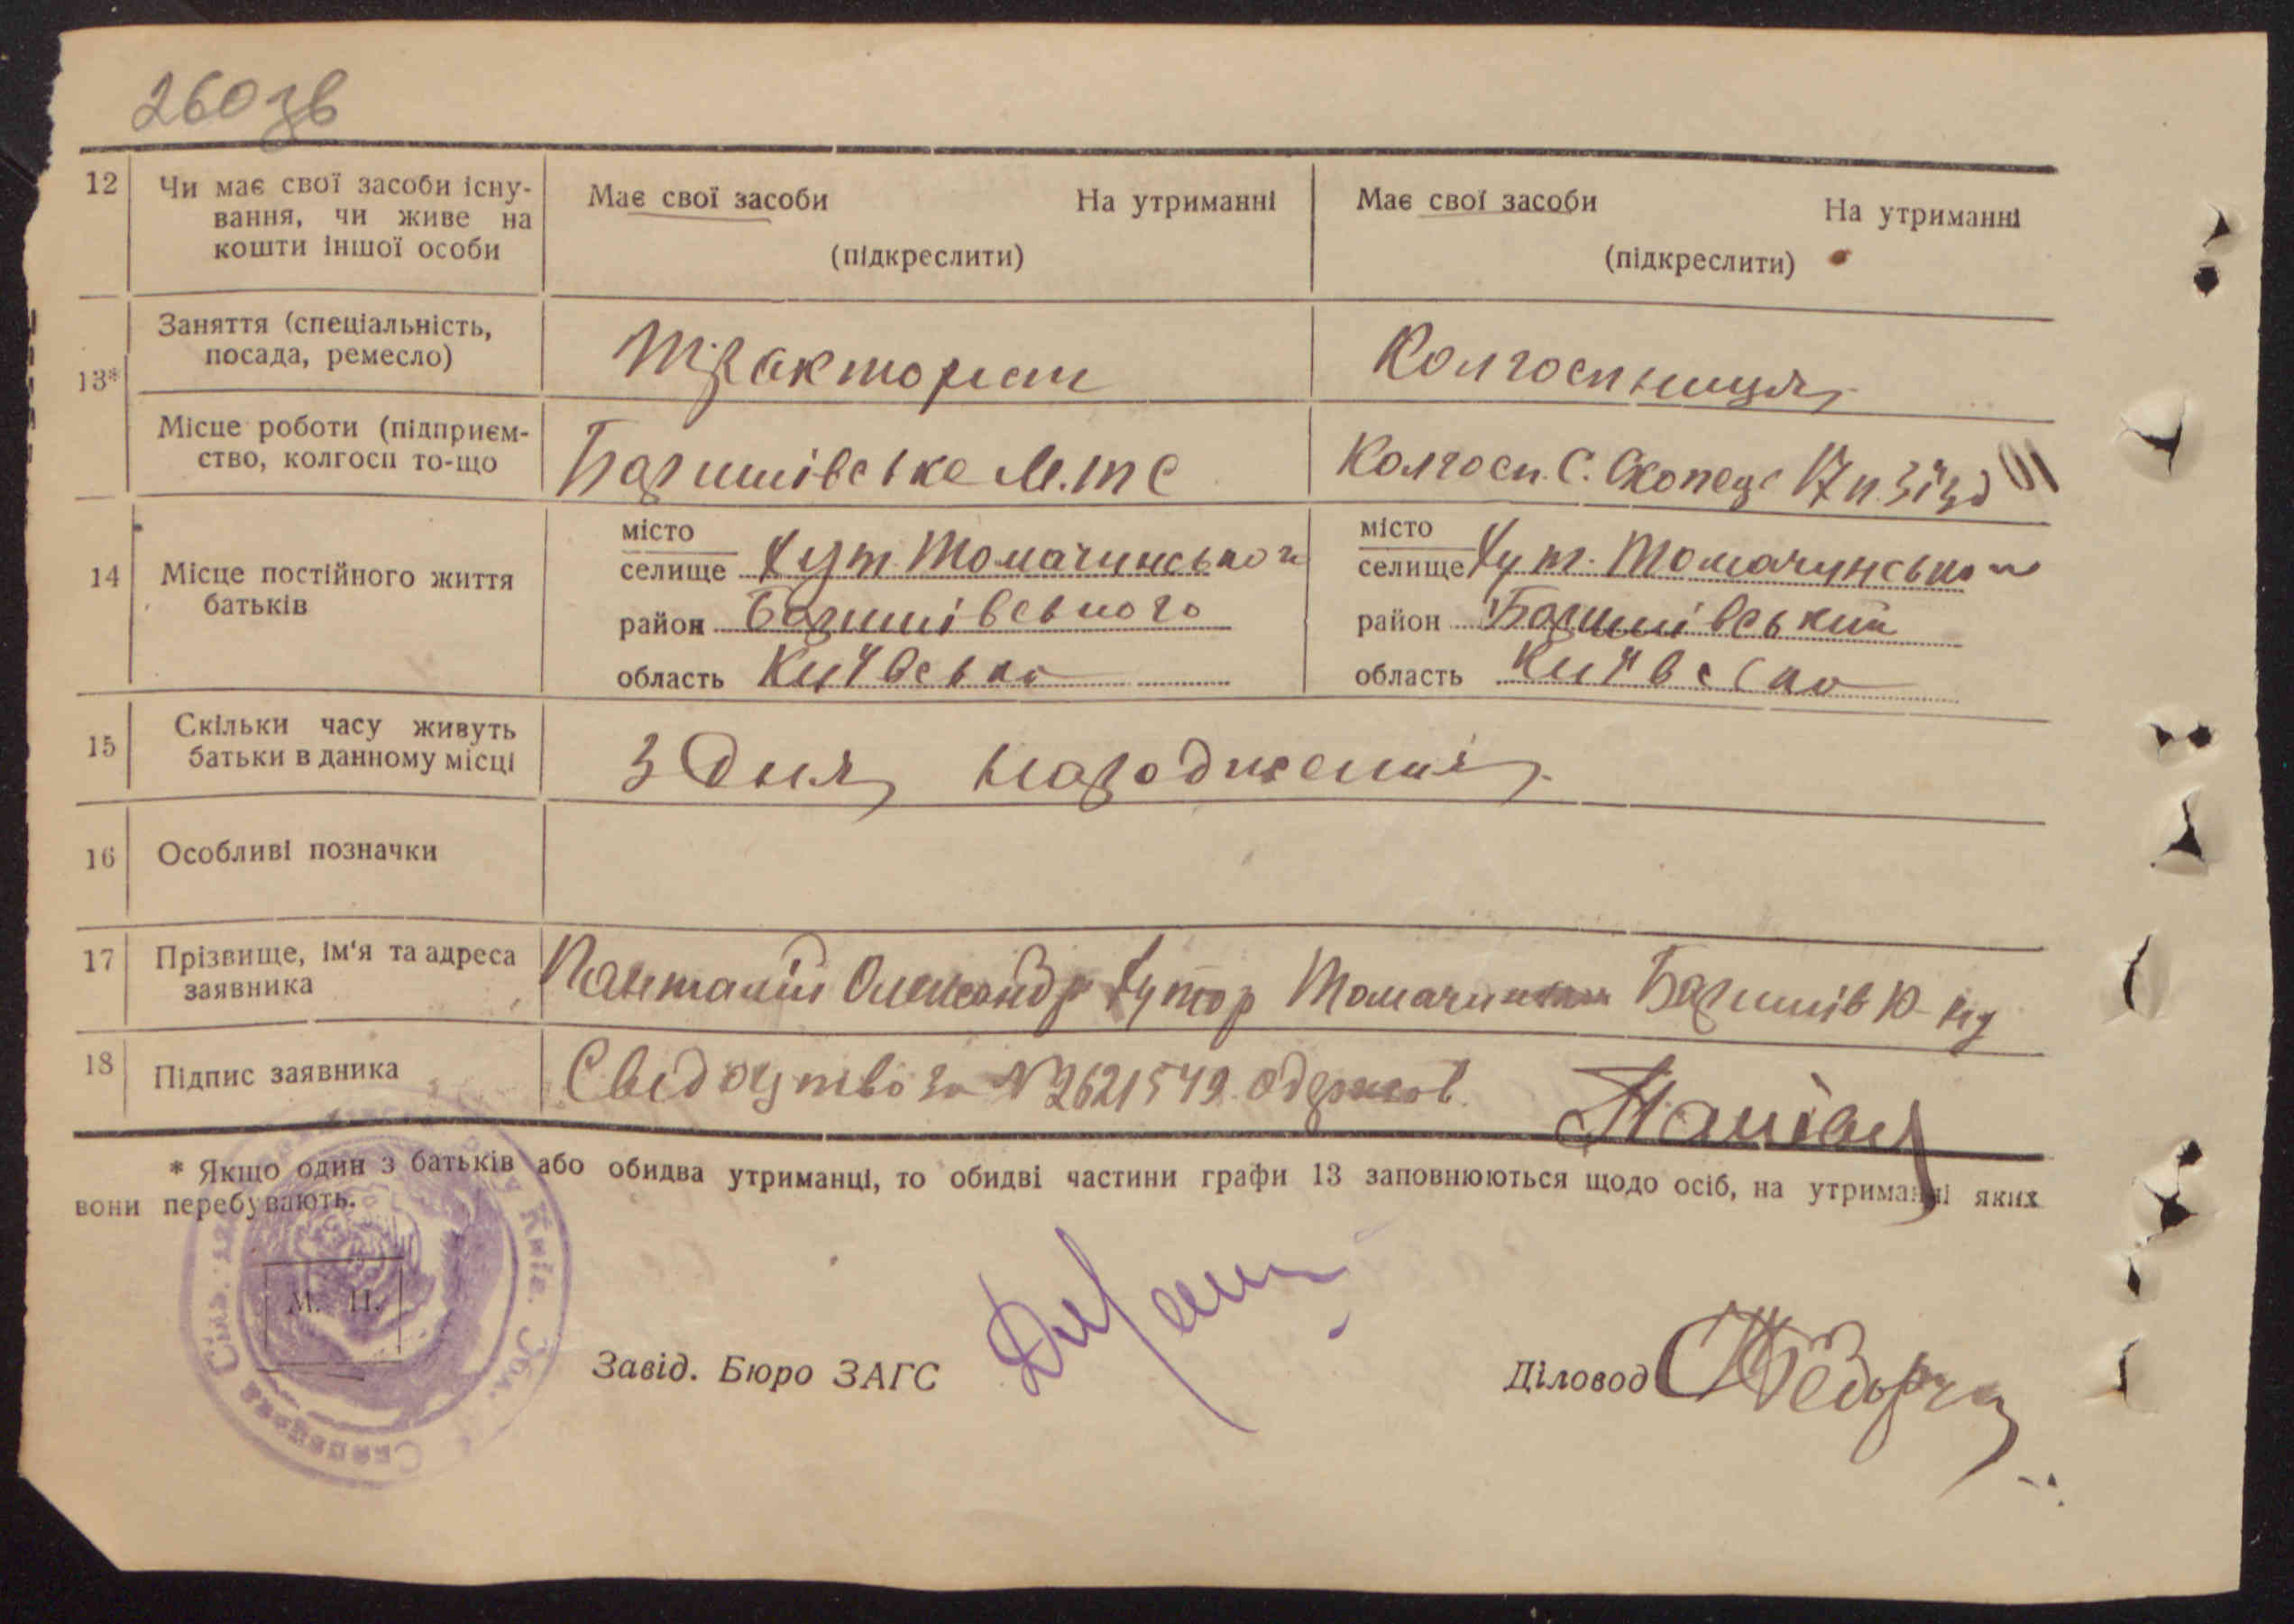 260 зв
12 Чи має свої засоби існу-
вання, чи живе на
кошти іншої особи
Має свої засоби На утриманні
(підкреслити)
Має свої засоби На утриманні
(підкреслити)
13*
Заняття (спеціальність,
посада, ремесло)
Тракторист
Колгоспниця
Місце роботи (підприєм-
ство, колгосп то-що
Баришівське М.Т.С
Колгосп. С. Скопеці 17 п. З'їзд
14 Місце постійного життя
батьків
місто
селище Хут.
район Баришівського
область Київсько
місто
селище Хут.
район Баришівський
область Київсько
15 Скільки часу живуть
батьки в данному місці
З Дня народження
16 Особливі позначки
17 Прізвище, ім'я та адреса
заявника
Олександр Хутор Баришів
18 Підпис заявника
Свидоцтво за № 2621549 одержав.
* Якщо один з батьків або обидва утриманці, то обидві частини графи 13 заповнюються щодо осіб, на утриманні яких
вони перебувають.
М. П.
Завід. Бюро ЗАГС
Діловод